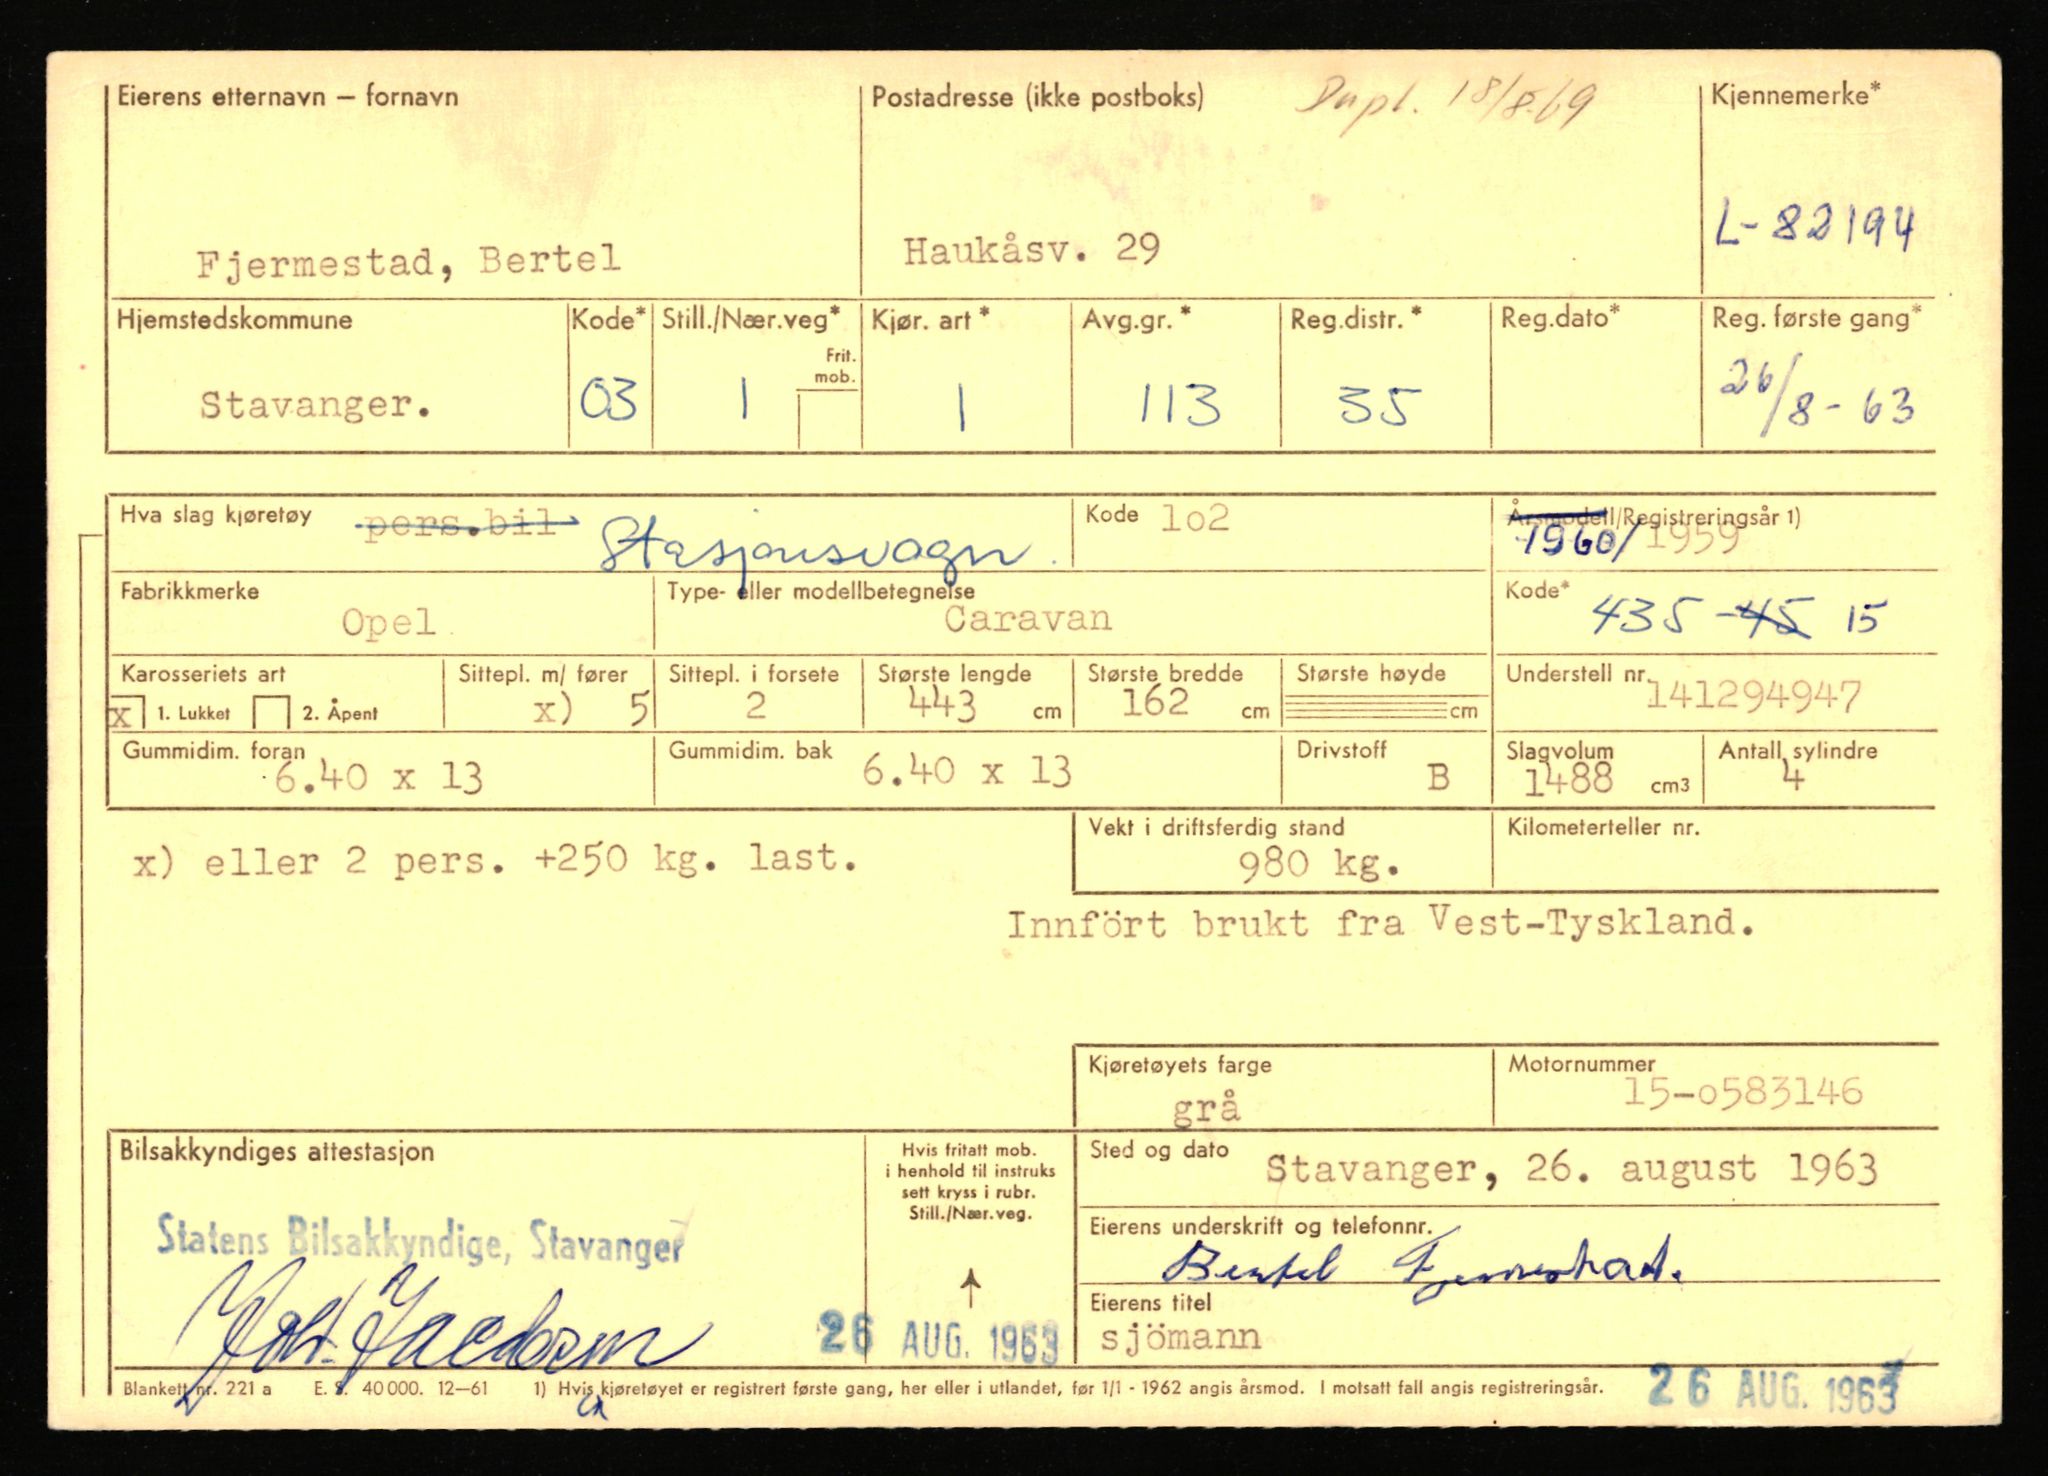 Eierens etternavn – fornavn
Fjermestad, Bertel
Postadresse (ikke postboks)
Dupl. 18/8-69
Haukåsv. 29
Kjennemerke*
L-82194
Hjemstedskommune
Stavanger.
Kode*
03
Still./Nær.veg*
1
Frit.
mob.
Kjør. art*
1
Avg.gr.*
113
Reg.distr.*
35
Reg.dato*
Reg. første gang*
26/8-63
Hva slag kjøretøy
pers.bil Stasjonsvagn.
Kode 1o2
Årsmodell/Registreringsår 1)
1960/1959
Fabrikkmerke
Opel
Type- eller modellbetegnelse
Caravan
Kode*
435 -45 15
Karosseriets art
x 1. Lukket 2. Åpent
Sittepl. m/ fører
x) 5
Sittepl. i forsete
2
Største lengde
443 cm
Største bredde
162 cm
Største høyde
cm
Understell nr.
141294947
Gummidim. foran
6.40 x 13
Gummidim. bak
6.40 x 13
Drivstoff
B
Slagvolum
1488 cm3
Antall sylindre
4
x) eller 2 pers. +250 kg. last.
Vekt i driftsferdig stand
980 kg.
Kilometerteller nr.
Innfört brukt fra Vest-Tyskland.
Kjøretøyets farge
grå
Motornummer
15-o583146
Bilsakkyndiges attestasjon
Statens Bilsakkyndige, Stavanger
Jacobsen
26 AUG. 1963
Hvis fritatt mob.
i henhold til instruks
sett kryss i rubr.
Still./Nær.veg.
Sted og dato
Stavanger, 26. august 1963
Eierens underskrift og telefonnr.
Bertel Fjermestad.
Eierens titel
sjömann
Blankett nr. 221 a E. S. 40 000. 12–61 1) Hvis kjøretøyet er registrert første gang, her eller i utlandet, før 1/1 - 1962 angis årsmod. I motsatt fall angis registreringsår.
26 AUG. 1963